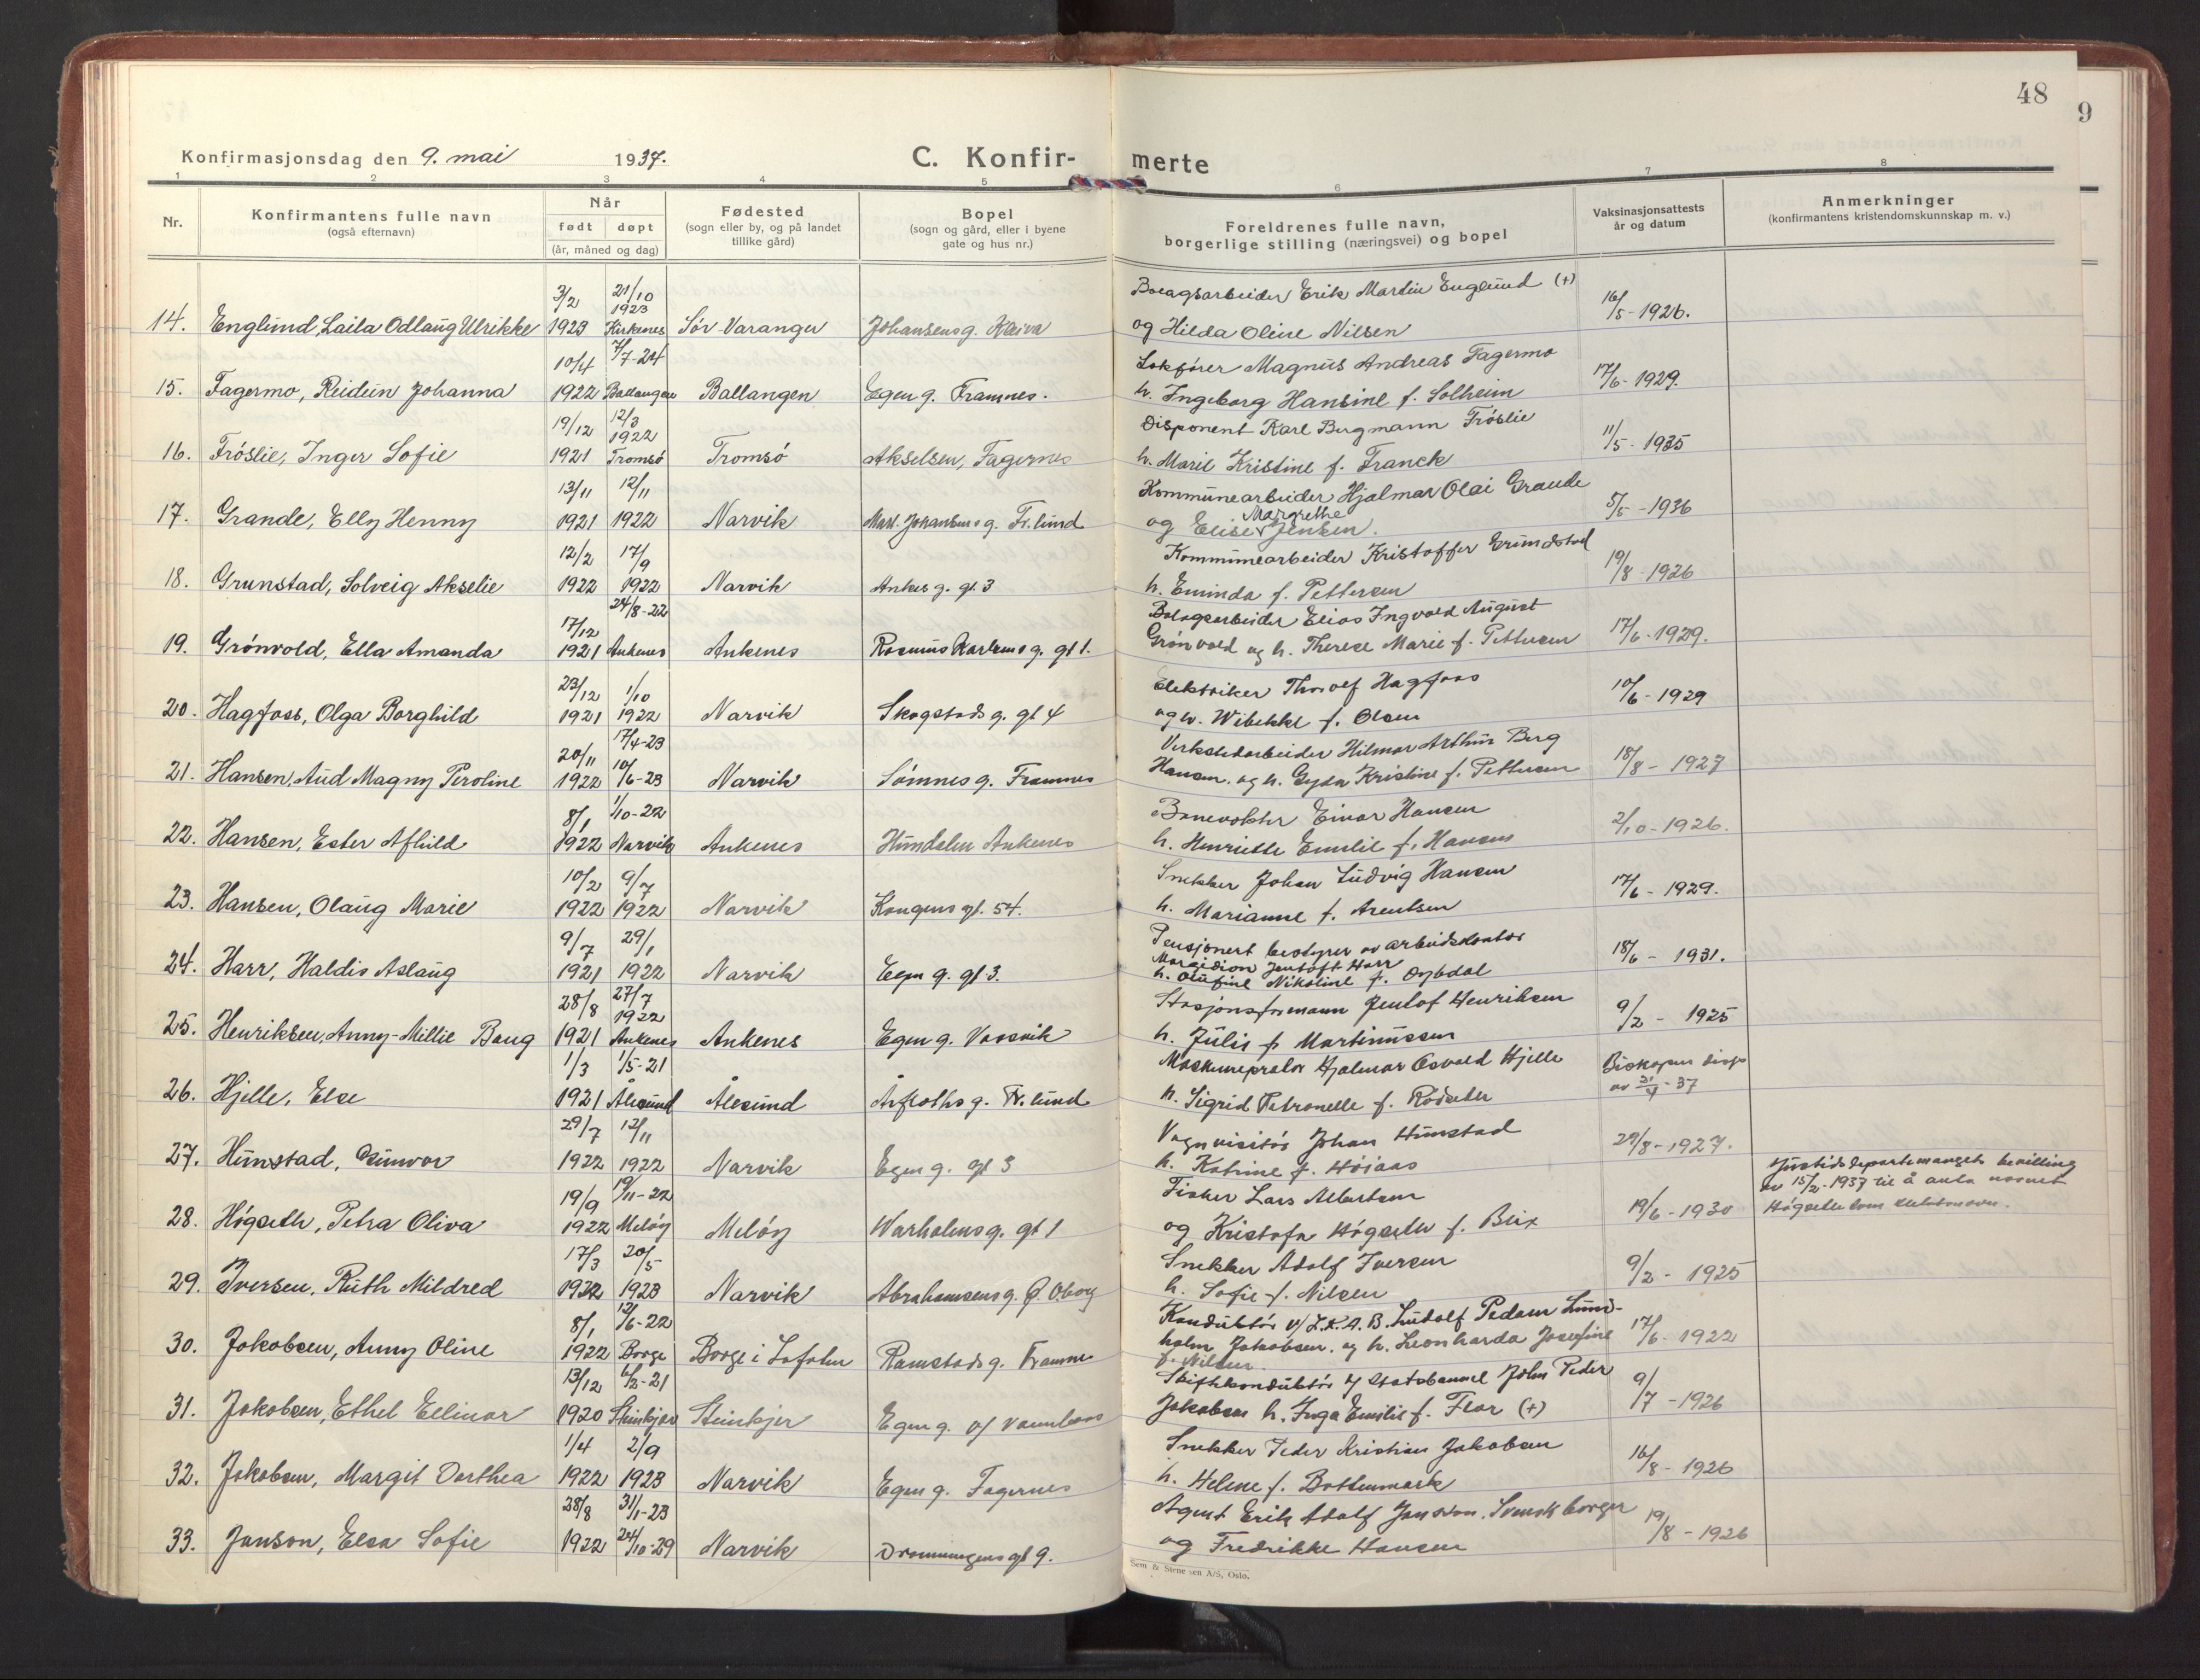 48
9
Konfirmasjonsdag den 9. mai 1937.
C. Konfir-
merte
1 2 3 4 5 6 7 8
Nr.
Konfirmantens fulle navn
(også efternavn)
Når
født døpt
(år, måned og dag)
Fødested
(sogn eller by, og på landet
tillike gård)
Bopel
(sogn og gård, eller i byene
gate og hus nr.)
Foreldrenes fulle navn,
borgerlige stilling (næringsvei) og bopel
Vaksinasjonsattests
år og datum
Anmerkninger
(konfirmantens kristendomskunnskap m. v.)
3/2 21/10 1923 Bolagsarbeider Erik Martin Englund (+)
14. Englund, Laila Odlaug Ulrikke 1923 Kirkenes Sør-Varanger Johansens g. og Hilda Oline Nilsen 16/5-1926.
10/4 7/7-24 Lokfører Magnus Andreas Fagermo
15. Fagermo, Reidun Johanna 1922 Ballangen Ballangen Egen g. Framnes. h. Ingeborg Hansine f. Solheim 17/6-1929.
19/12 12/3 1922 Disponent Karl Bergmann Frøslie
16. Frøslie, Inger Sofie 1921 Tromsø Tromsø Akselsen, Fagernes h. Marie Kristine f. Franck 11/5-1935
13/11 12/11 Kommunearbeider Hjalmar Olai Grande
17. Grande, Elly Henny 1921 1922 Narvik Mart. Johansens g. Fr.lund og Elise Margrethe Jensen. 5/5-1936
12/2 17/9 Kommunearbeider Kristoffer Grundstad
18. Grunstad, Solveig Akselie 1922 1922 Narvik Ankes g. gt 3 h. Eminda f. Pettersen 19/8-1926
17/12 24/8-22 Bolagsarbeider Elias Ingvald August
19. Grønvold, Ella Amanda 1921 Ankenes Ankenes Rasmus Karlsens g. gt 1. Grønvold og h. Therese Marie f. Pettersen 17/6-1929.
23/12 1/10 Elektriker Thorolf Hagfoss
20. Hagfoss, Olga Borghild 1921 1922 Narvik Skogstads g. gt 4 og h. Wibekke f. Olsen 10/6-1929
20/11 17/4-23 Verkstedarbeider Hilmar Arthur Berg
21. Hansen, Aud Magny Peroline 1922 10/6-23 Narvik Sømnes g. Framnes Hansen. og h. Gyda Kristine f. Pettersen 18/8-1927
8/1 1/10-22 Banevokter Einar Hansen
22. Hansen, Ester Afhild 1922 Narvik Ankenes Hundalen Ankenes h. Henriette Emilie f. Hansen 2/10-1926.
10/2 9/7 Snekker Johan Ludvig Hansen
23. Hansen, Olaug Marie 1922 1922 Narvik Kongens gt. 54. h. Marianne f. Arentsen 17/6-1929.
9/7 29/1 Pensjonert bestyrer av arbeidskontor
24. Harr, Haldis Aslaug 1921 1922 Narvik Egen g. gt 3. Jentoft Harr 18/6-1931.
h. Olufine Nikoline f. Oybdal
28/8 27/7 1922 Stasjonsformann Jentof Henriksen
25. Henriksen, Anny-Millie Baug 1921 Ankenes Ankenes Egen g. Vassvik h. Julie f. Martinussen 9/2-1925
1/3 1/5-21 Maskinreparatør Hjalmar Osvald Hjelle Biskopens disp
26. Hjelle, Else 1921 Ålesund Ålesund Arfloths g. Fr.lund h. Sigrid Petronelle f. Rødseter av 31/ - 37
29/7 12/11 Vognvisitør Johan Hunstad
27. Hunstad, Gunvor 1922 1922 Narvik Egen g. gt 3 h. Katrine f. Høiaas 29/8-1927.
19/9 19/11-22 Fisker Lars Albertsen Justisdepartemangets bevilling
28. Høgseth, Petra Oliva 1922 Meløy Meløy Warholms g. gt 1 og Kristofa Høgseth f. Blix 19/6-1930 av 15/2-1937 til å anta navnet
Høgseth som slektsnavn.
17/3 20/5 Snekker Adolf Iversen
29. Iversen, Ruth Mildred 1922 1923 Narvik Abrahamsens g. h. Sofie f. Nilsen 9/2-1925
8/1 12/6-22 Konduktør v/ L.K.A.B. Ludolf Pedam Lund-
30. Jakobsen, Anny Oline 1922 Borge Borge i Lofoten Ramstads g. Framne holm Jakobsen. og h. Leonharda Josefine 17/6-1922
f. Nilsen.
13/12 6/2-21 Skiftekonduktør v/ Statsbanene John Peder
31. Jakobsen, Ethel Ellinor 1920 Steinkjer Steinkjer Egen g. v/ Jakobsen h. Inga Emilie f. Flor (+) 9/7-1926
1/4 2/9 Snekker Peder Kristian Jakobsen
32. Jakobsen, Margit Dorthea 1922 1923 Narvik Egen g. Fagernes h. Helene f. Bottenmark 16/8-1926
28/8 31/1-23 Agent Erik Adolf Jansson. Svensk borger
33. Janson, Elsa Sofie 1922 24/10-29 Narvik Dronningens gt 9. og Fredrikke Hansen 19/8-1926
Sem & Stenersen A/S, Oslo.